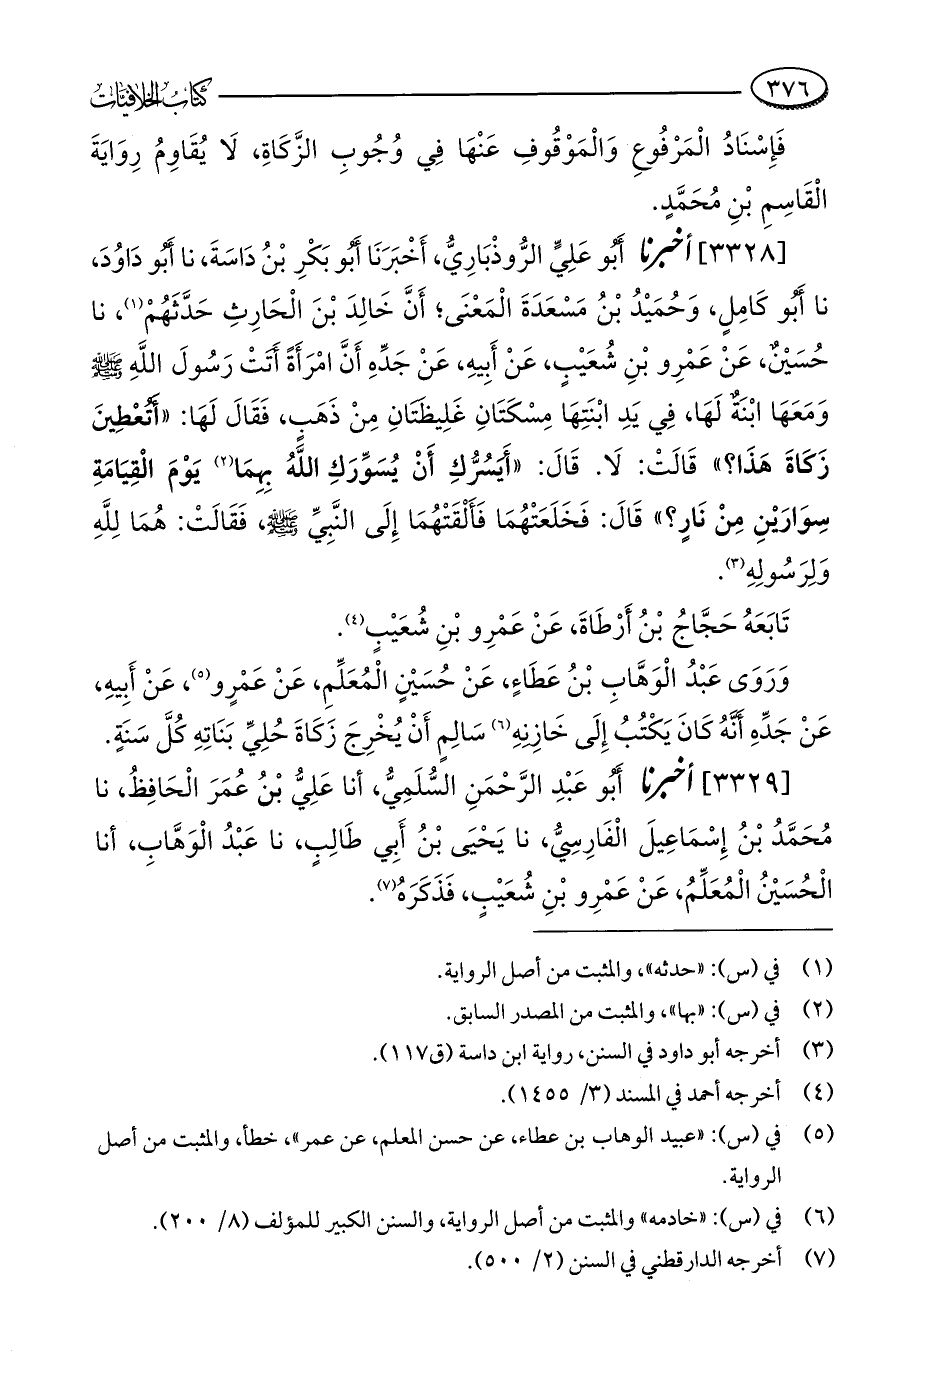 ٣٧٦ كتاب الخلافيات
فَإِسْنَادُ الْمَرْفُوعِ وَالْمَوْقُوفِ عَنْهَا فِي وُجُوبِ الزَّكَاةِ، لَا يُقَاوِمُ رِوَايَةَ
الْقَاسِمِ بْنِ مُحَمَّدٍ.
[٣٣٢٨] أخبرنا أَبُو عَلِيٍّ الرُّوذْبَارِيُّ، أَخْبَرَنَا أَبُو بَكْرِ بْنُ دَاسَةَ، نا أَبُو دَاوُدَ،
نا أَبُو كَامِلٍ، وَحُمَيْدُ بْنُ مَسْعَدَةَ الْمَعْنَى؛ أَنَّ خَالِدَ بْنَ الْحَارِثِ حَدَّثَهُمْ(١)، نا
حُسَيْنٌ، عَنْ عَمْرِو بْنِ شُعَيْبٍ، عَنْ أَبِيهِ، عَنْ جَدِّهِ أَنَّ امْرَأَةً أَتَتْ رَسُولَ اللَّهِ ﷺ
وَمَعَهَا ابْنَةٌ لَهَا، فِي يَدِ ابْنَتِهَا مِسْكَتَانِ غَلِيظَتَانِ مِنْ ذَهَبٍ، فَقَالَ لَهَا: «أَتُعْطِينَ
زَكَاةَ هَذَا؟» قَالَتْ: لَا. قَالَ: «أَيَسُرُّكِ أَنْ يُسَوِّرَكِ اللَّهُ بِهِمَا(٢) يَوْمَ الْقِيَامَةِ
سِوَارَيْنِ مِنْ نَارٍ؟» قَالَ: فَخَلَعَتْهُمَا فَأَلْقَتْهُمَا إِلَى النَّبِيِّ ﷺ، فَقَالَتْ: هُمَا لِلَّهِ
وَلِرَسُولِهِ(٣).
تَابَعَهُ حَجَّاجُ بْنُ أَرْطَاةَ، عَنْ عَمْرِو بْنِ شُعَيْبٍ(٤).
وَرَوَى عَبْدُ الْوَهَّابِ بْنُ عَطَاءٍ، عَنْ حُسَيْنٍ الْمُعَلِّمِ، عَنْ عَمْرٍو(٥)، عَنْ أَبِيهِ،
عَنْ جَدِّهِ أَنَّهُ كَانَ يَكْتُبُ إِلَى خَازِنِهِ(٦) سَالِمٍ أَنْ يُخْرِجَ زَكَاةَ حُلِيِّ بَنَاتِهِ كُلَّ سَنَةٍ.
[٣٣٢٩] أخبرنا أَبُو عَبْدِ الرَّحْمَنِ السُّلَمِيُّ، أنا عَلِيُّ بْنُ عُمَرَ الْحَافِظُ، نا
مُحَمَّدُ بْنُ إِسْمَاعِيلَ الْفَارِسِيُّ، نا يَحْيَى بْنُ أَبِي طَالِبٍ، نا عَبْدُ الْوَهَّابِ، أنا
الْحُسَيْنُ الْمُعَلِّمُ، عَنْ عَمْرِو بْنِ شُعَيْبٍ، فَذَكَرَهُ(٧).
(١) في (س): «حدثه»، والمثبت من أصل الرواية.
(٢) في (س): «بها»، والمثبت من المصدر السابق.
(٣) أخرجه أبو داود في السنن، رواية ابن داسة (ق١١٧).
(٤) أخرجه أحمد في المسند (٣/ ١٤٥٥).
(٥) في (س): «عبيد الوهاب بن عطاء، عن حسن المعلم، عن عمر»، خطأ، والمثبت من أصل
الرواية.
(٦) في (س): «خادمه» والمثبت من أصل الرواية، والسنن الكبير للمؤلف (٨/ ٢٠٠).
(٧) أخرجه الدارقطني في السنن (٢/ ٥٠٠).